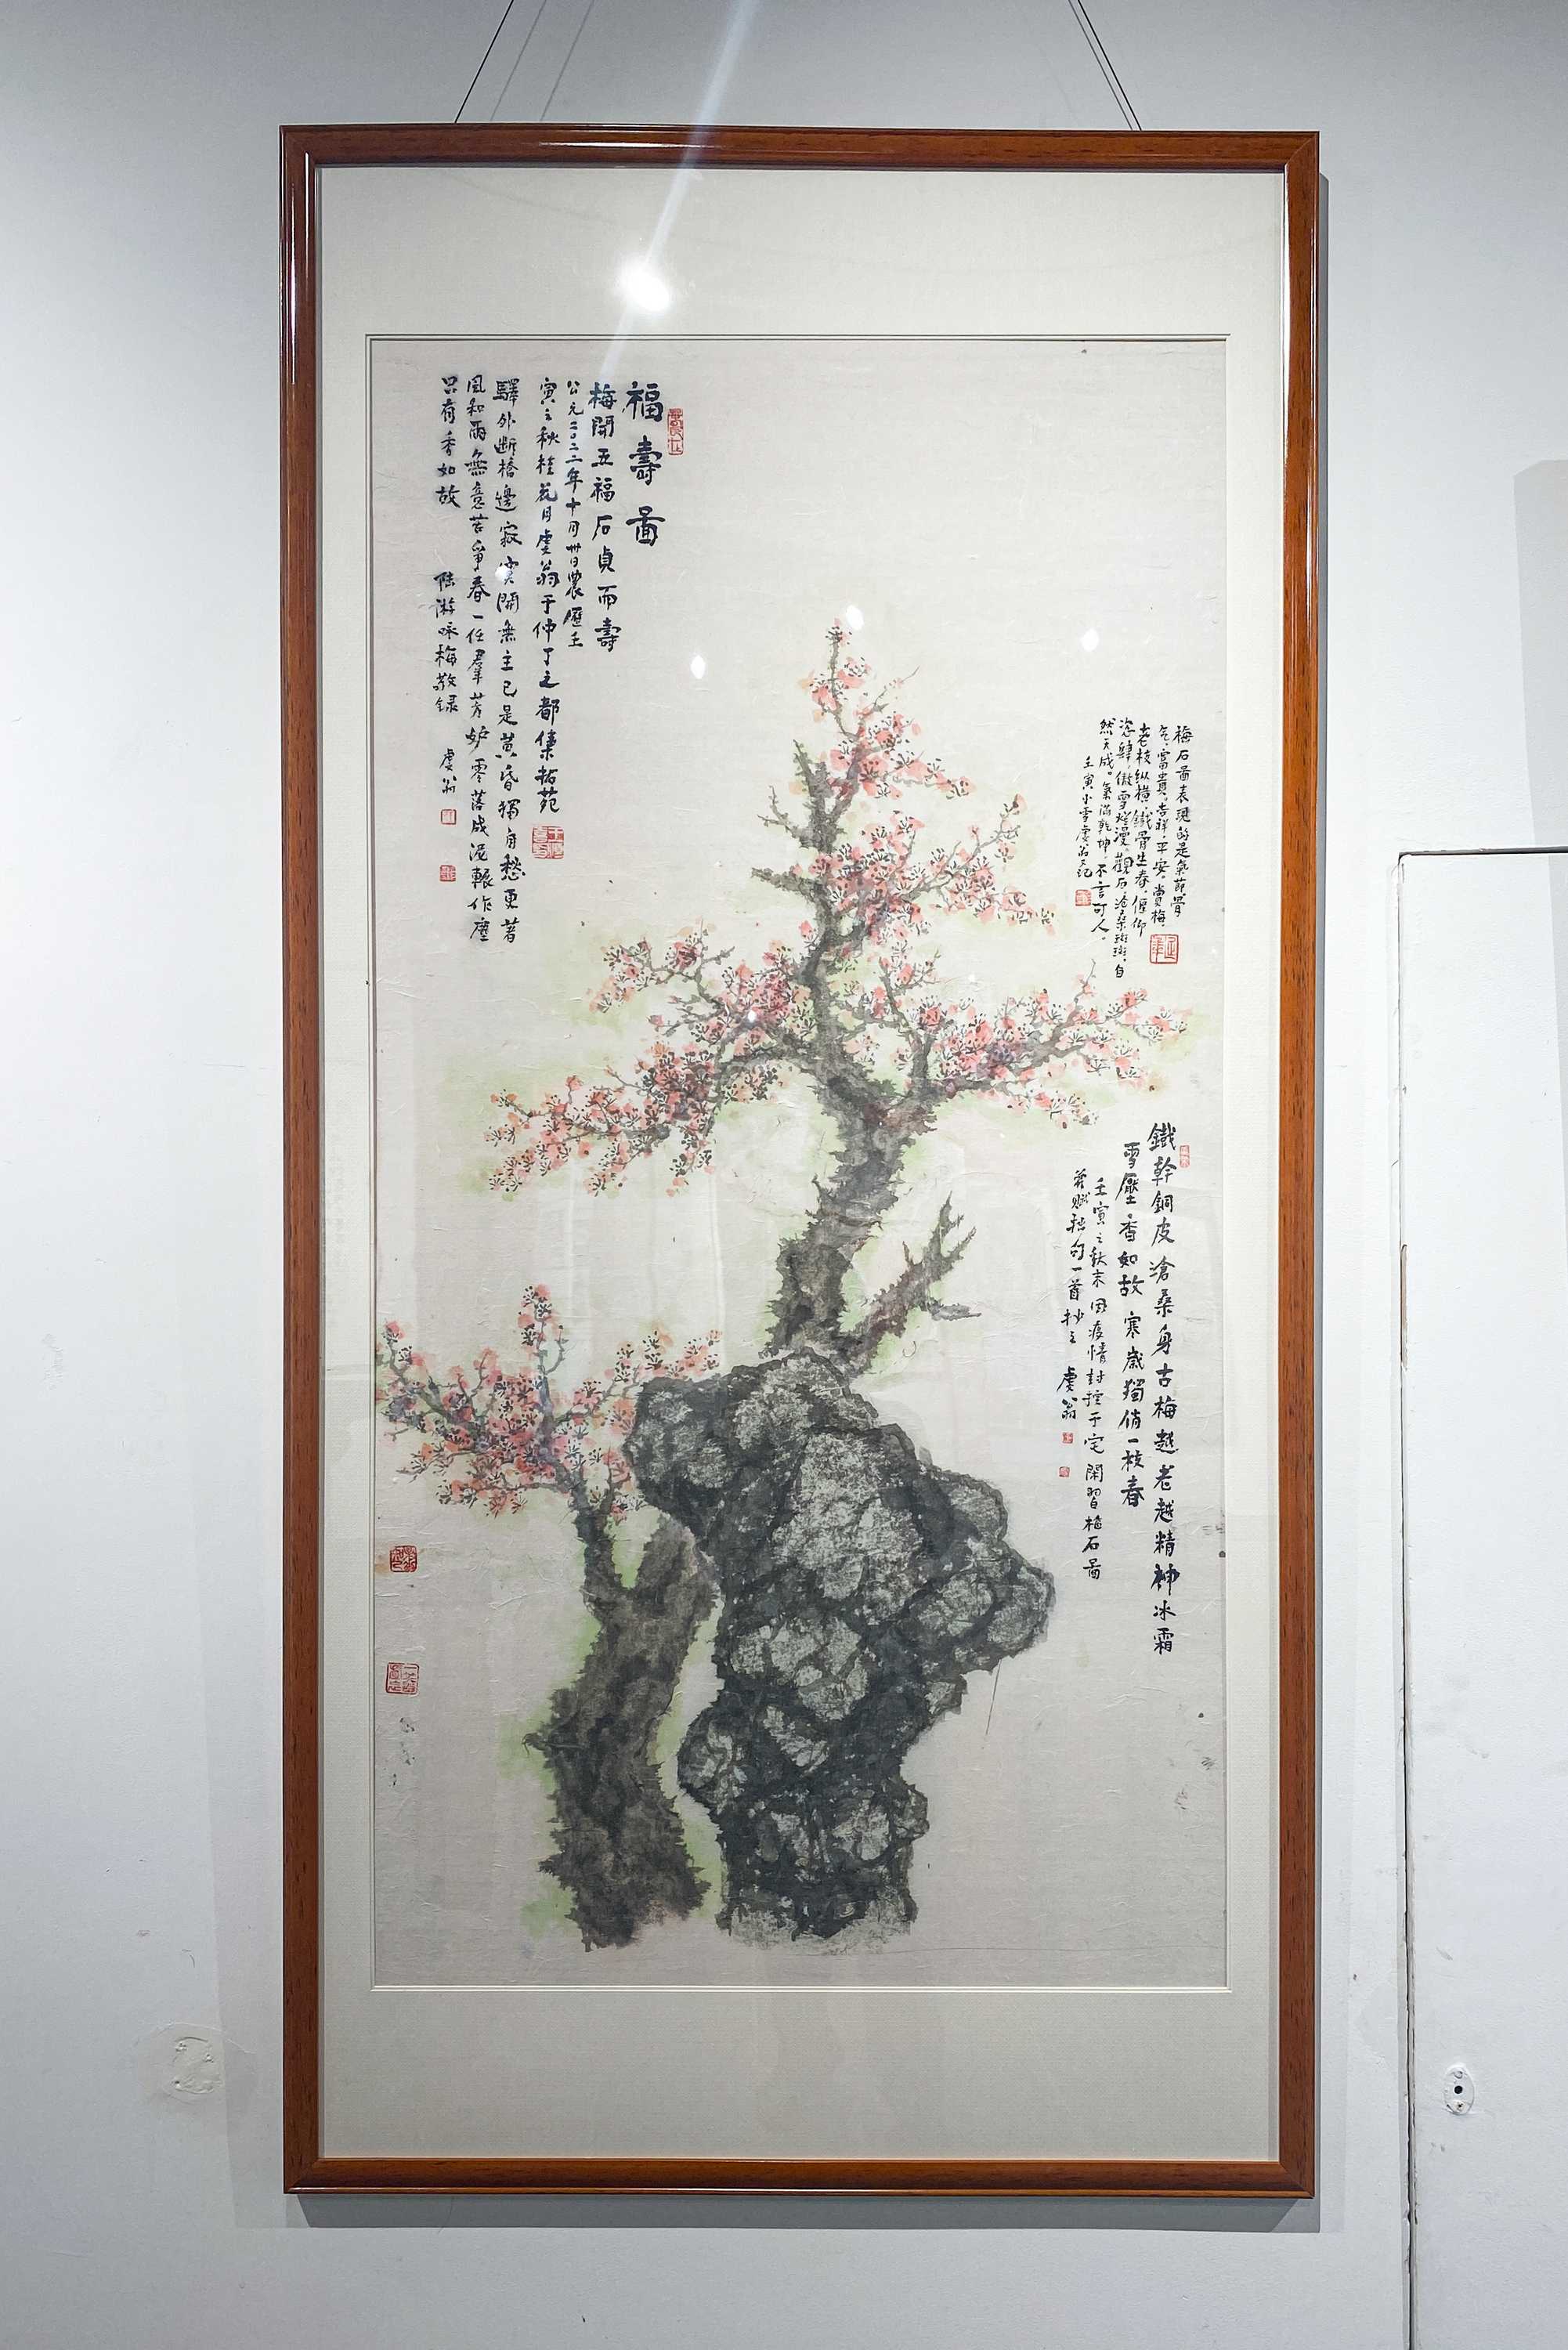 福壽圖
梅開五福石貞而壽
公元二〇二二年十月卅日農曆壬
寅之秋桂花月虔翁于仲丁之都集拓苑
驛外斷橋邊寂寞開無主已是黃昏獨自愁更著
風和雨無意苦爭春一任羣芳妒零落成泥輾作塵
只有香如故
陸游咏梅敬録
虔翁
梅石圖表現的是氣節骨
氣富貴吉祥平安賞梅
老枝纵橫鐵骨生春俯仰
恣肆傲雪爛漫觀石滄桑斑斑自
然天成。氣滿乾坤不言可人。
壬寅小雪虔翁又記
鐵幹銅皮滄桑身古梅越老越精神冰霜
雪壓香如故寒歲獨俏一枝春
壬寅之秋末因疫情封控于宅閑習梅石圖
并赋拙句一首抄之
虔翁